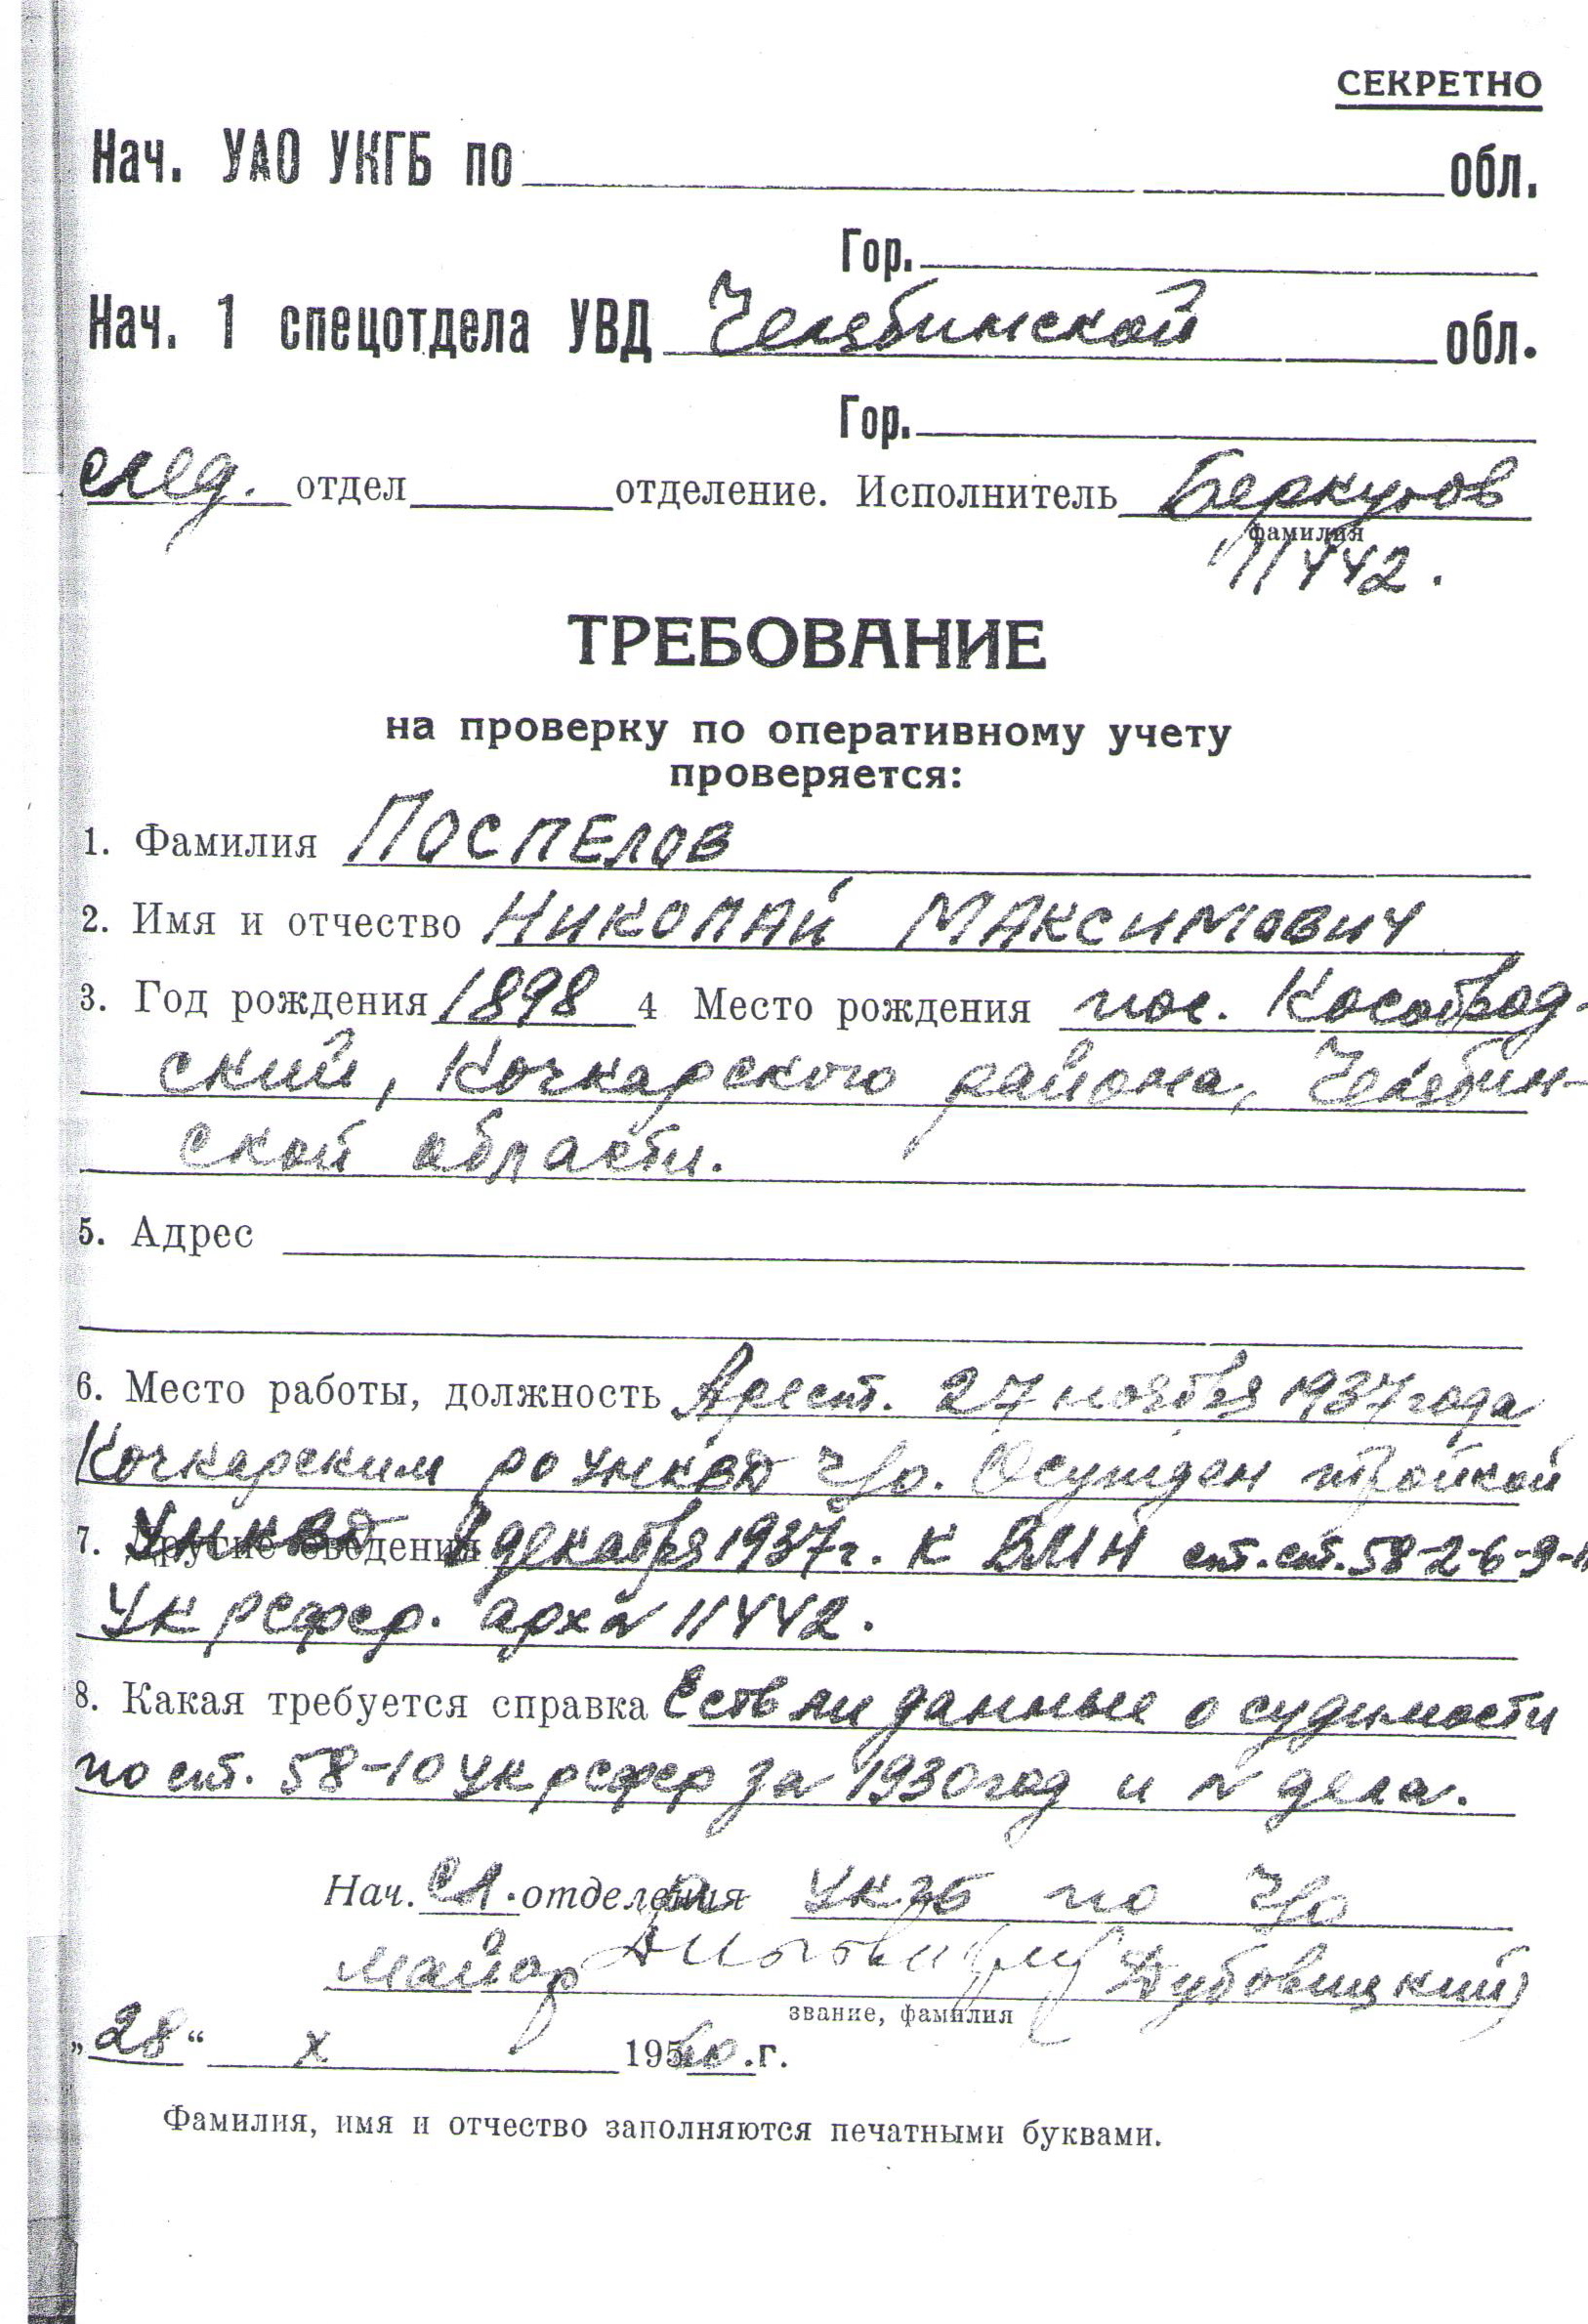 СЕКРЕТНО
Нач. УАО УКГБ по обл.
Гор.
Нач. 1 спецотдела УВД Челябинской обл.
Гор.
след. отдел отделение. Исполнитель Беркутов
фамилия
11442.
ТРЕБОВАНИЕ
на проверку по оперативному учету
проверяется:
1. Фамилия ПОСПЕЛОВ
2. Имя и отчество НИКОЛАЙ МАКСИМОВИЧ
3. Год рождения 1898 4 Место рождения пос. Кособрод-
ский, Кочкарского района, Челябин-
ской области.
5. Адрес
6. Место работы, должность Арест. 27 ноября 1937 года
Кочкарским РО УНКВД ЧО. Осужден тройкой
7. Другие сведения УНКВД декабря 1937 г. к ВМН ст.ст. 58-2-6-9-11
УК РСФСР. арх № 11442.
8. Какая требуется справка Есть ли данные о судимости
по ст. 58-10 УК РСФСР за 1930 год и № дела.
Нач. сл. отделения УКГБ по ЧО
майор (Дубовицкий)
звание, фамилия
„28“ X 1960.г.
Фамилия, имя и отчество заполняются печатными буквами.